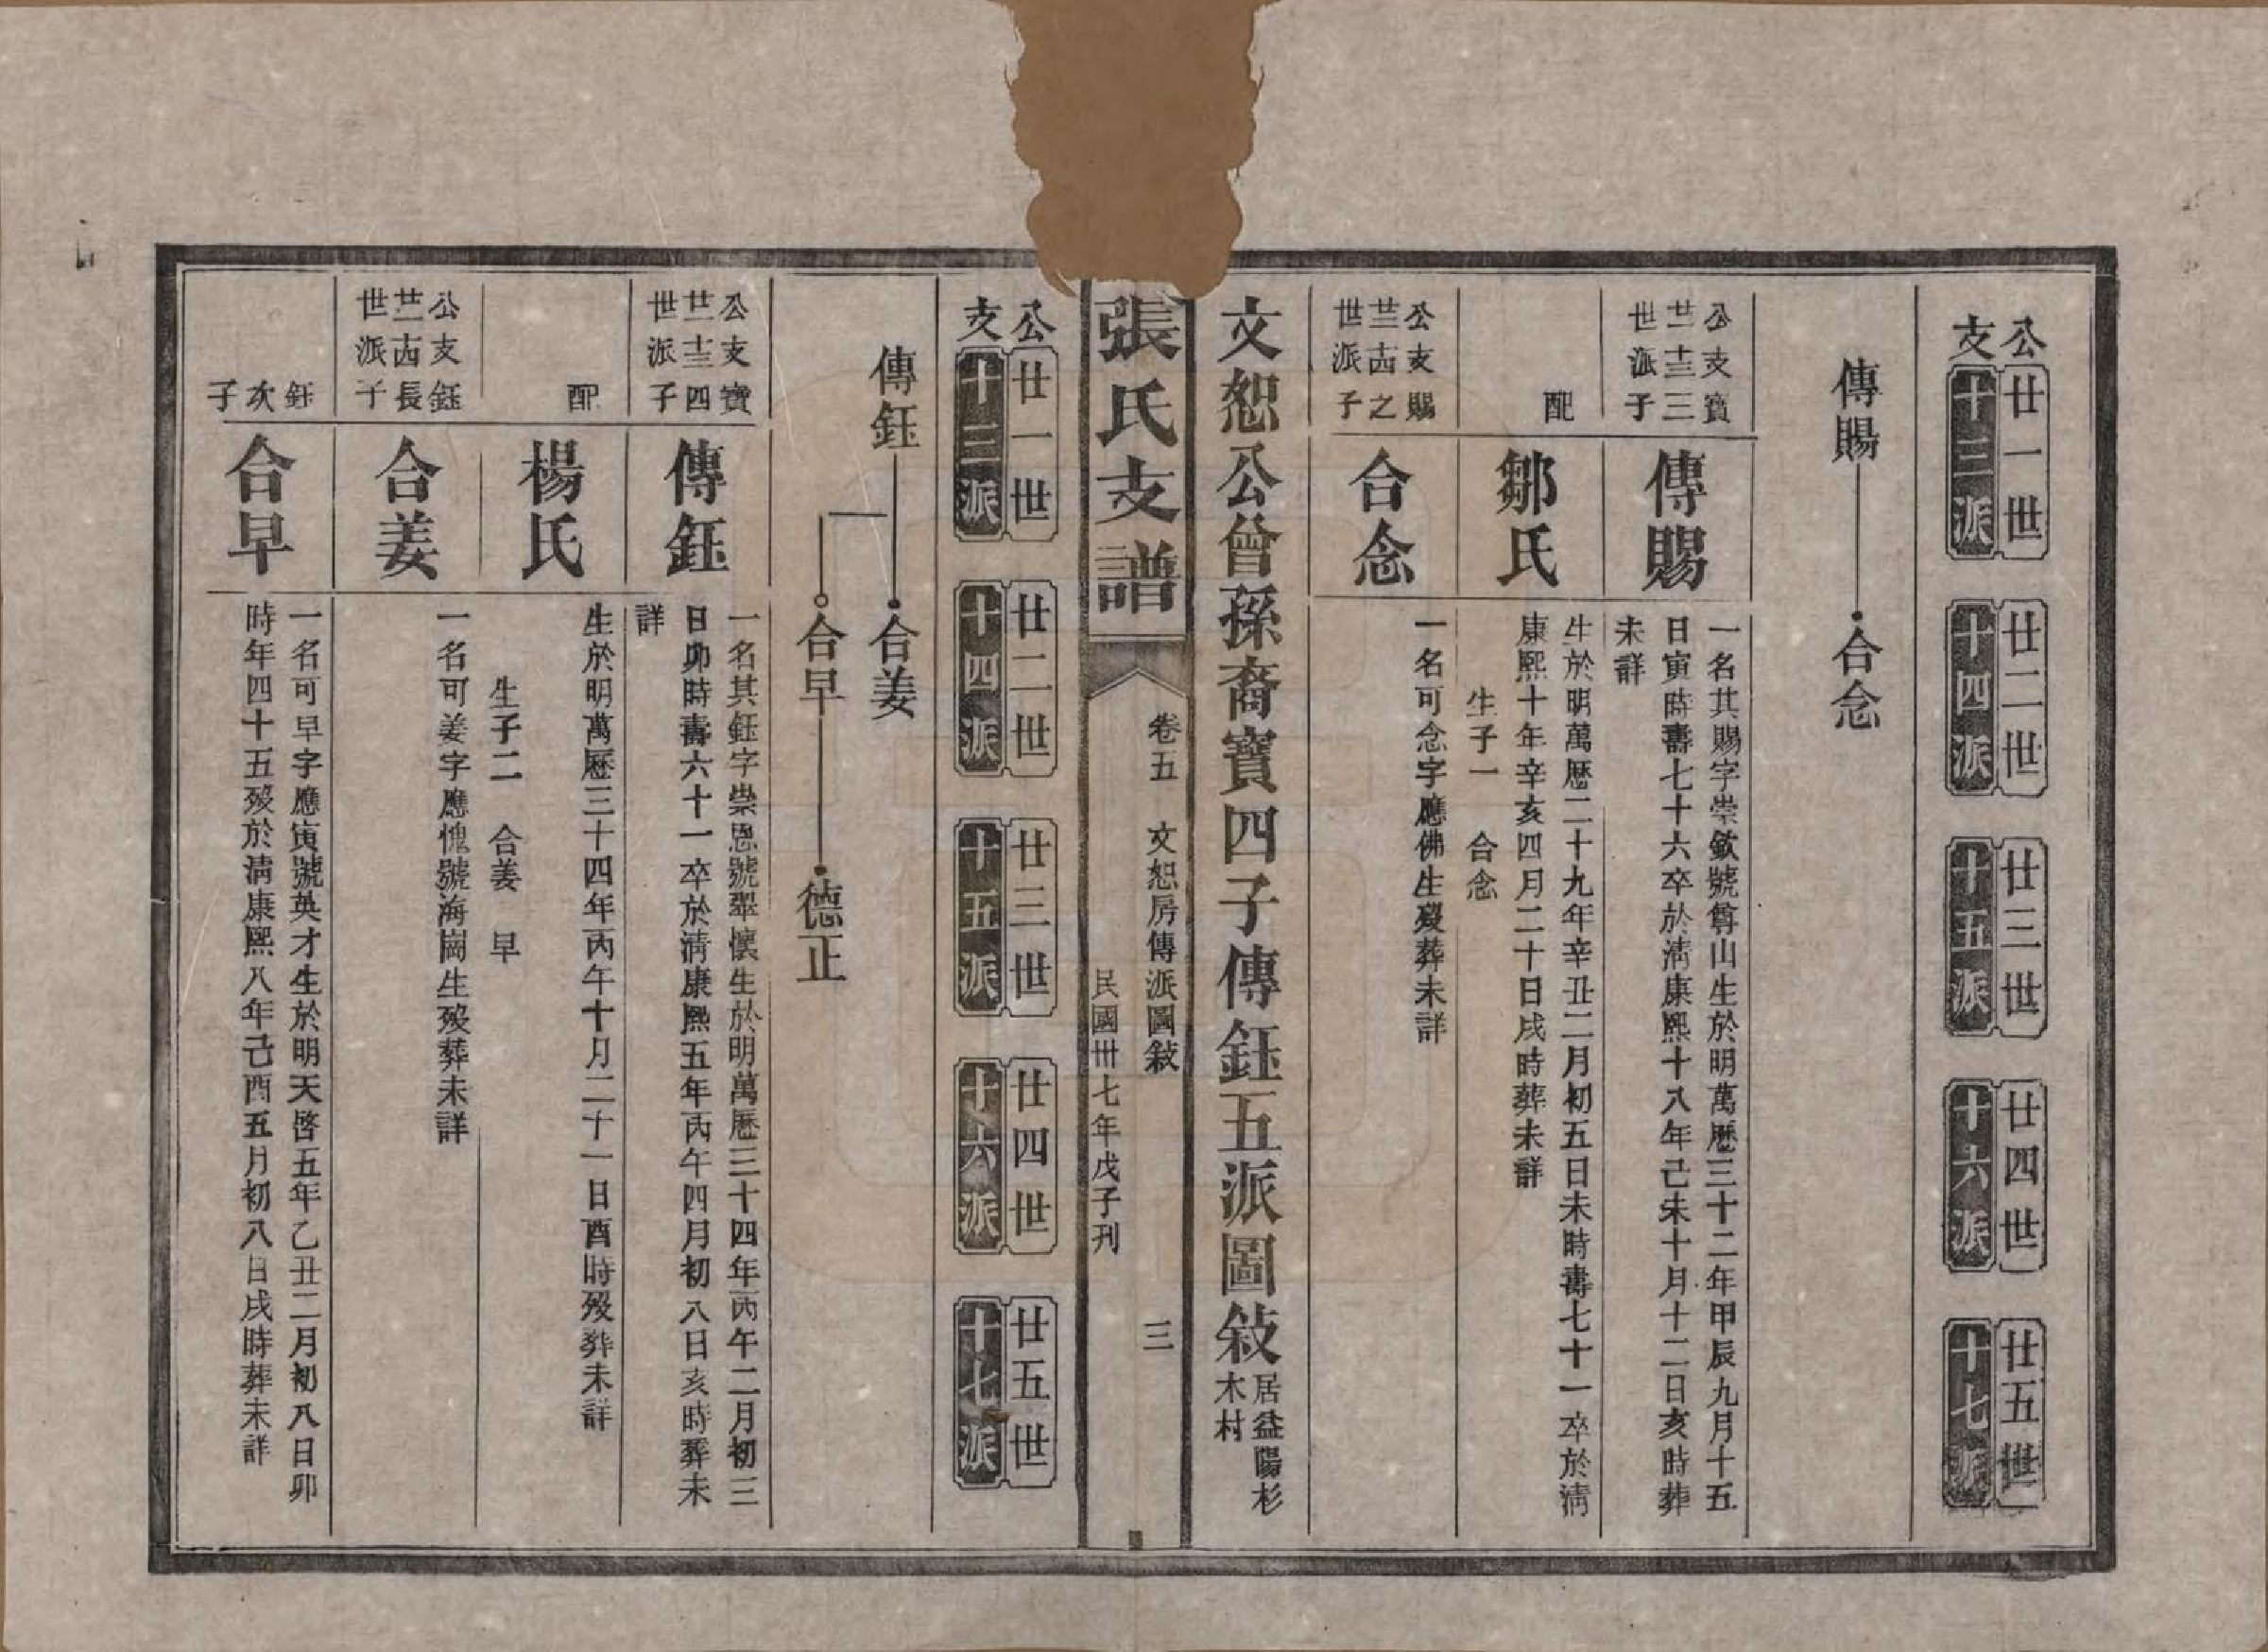 公支
廿一世 十三派
廿二世 十四派
廿三世 十五派
廿四世 十六派
廿五世 十七派
傳賜 合念
公支寶
廿十三三
世派子
傳賜
一名其賜字崇欽號尊山生於明萬歷三十二年甲辰九月十五
日寅時壽七十六卒於清康熙十八年己未十月十二日亥時葬
未詳
配
鄒氏
生於明萬歷二十九年辛丑二月初五日未時壽七十一卒於清
康熙十年辛亥四月二十日戌時葬未詳
生子一 合念
公支賜
廿二十四之
世派子
合念
一名可念字應佛生歿葬未詳
文恕公曾孫裔寶四子傳鈺五派圖敍
居益陽杉
木村
張氏支譜
卷五 文恕房傳派圖敍 三
民國卅七年戊子刊
公支
廿一世 十三派
廿二世 十四派
廿三世 十五派
廿四世 十六派
廿五世 十七派
傳鈺 合姜
合早 德正
公支寶
廿一十三四
世派子
傳鈺
一名其鈺字崇恩號翠懷生於明萬歷三十四年丙午二月初三
日卯時壽六十一卒於清康熙五年丙午四月初八日亥時葬未
詳
配
楊氏
生於明萬歷三十四年丙午十月二十一日酉時歿葬未詳
生子二 合姜 早
公支鈺
廿二十四長
世派子
合姜
一名可姜字應愧號海崗生歿葬未詳
鈺次子
合早
一名可早字應寅號英才生於明天啓五年乙丑二月初八日卯
時年四十五歿於清康熙八年己酉五月初八日戌時葬未詳